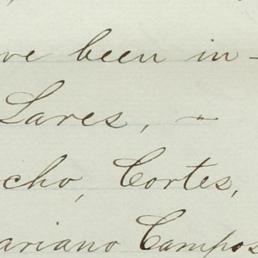 ve been in-
Lares, -
cho, Cortes,
ariano Campos